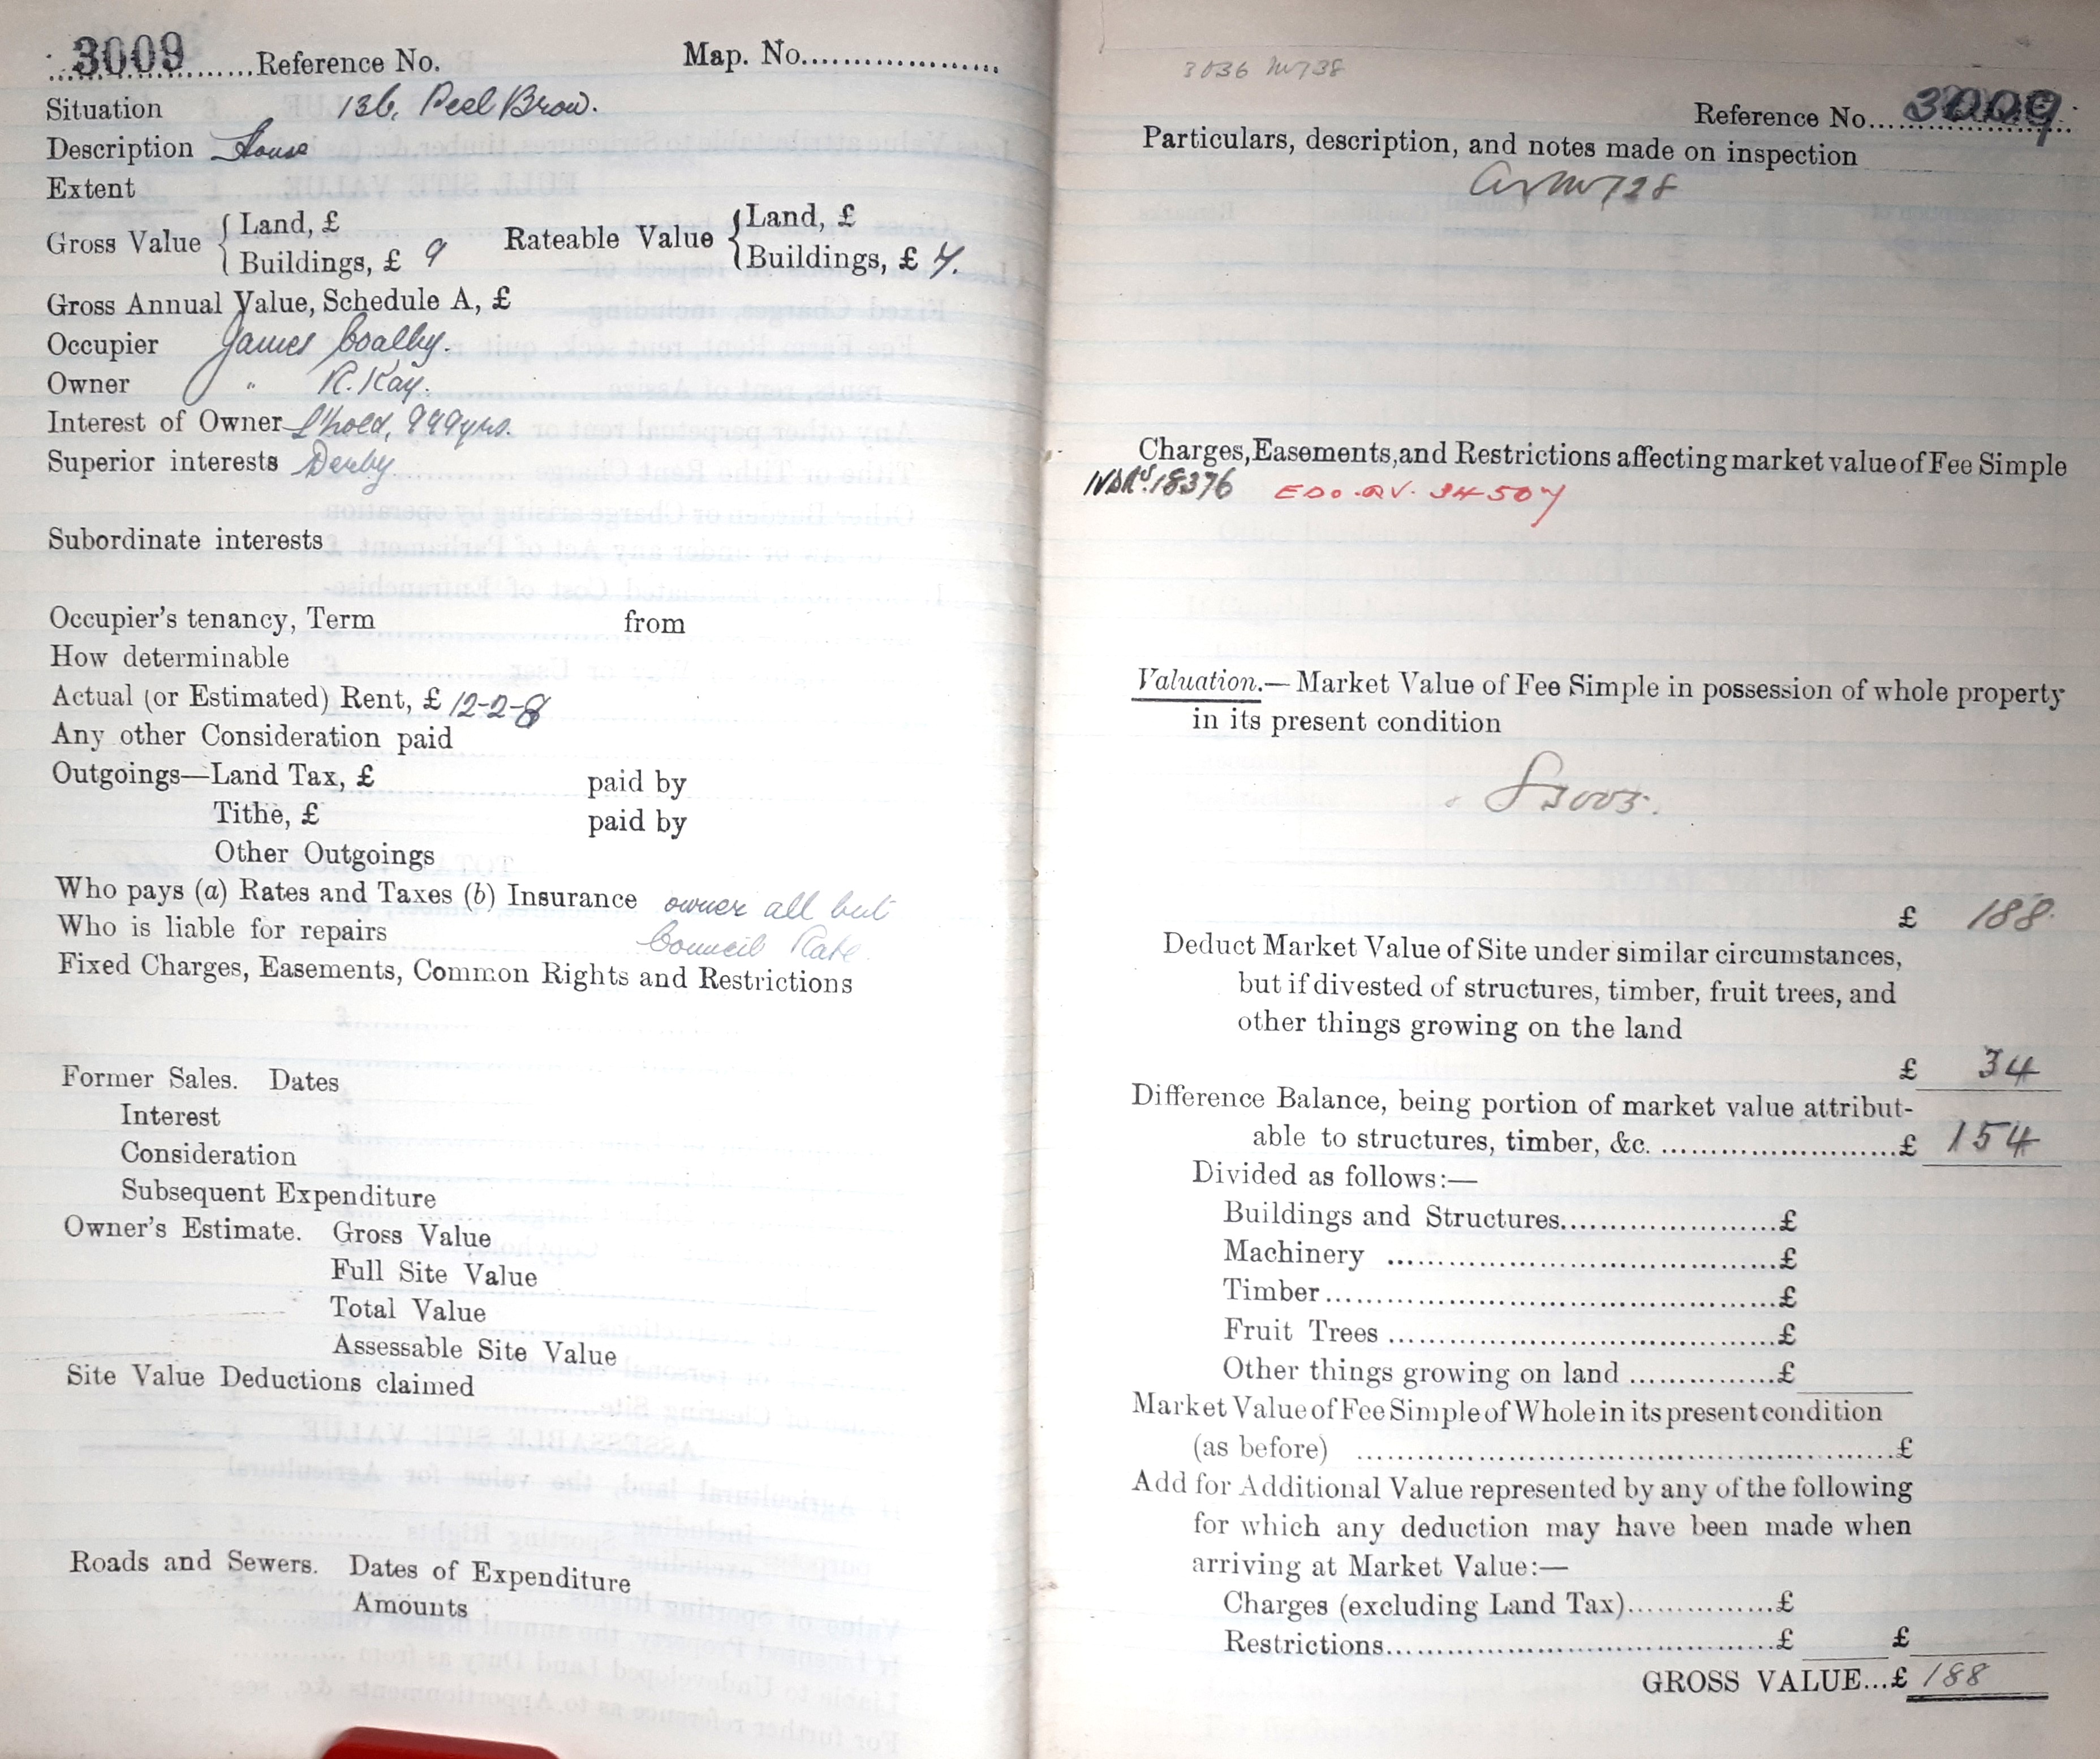 3009 Reference No. Map. No.
Situation 136, Peel Brow.
Description House
Extent
Gross Value { Land, £
Buildings, £ 9
Rateable Value { Land, £
Buildings, £ 7.
Gross Annual Value, Schedule A, £
Occupier James Coalby.
Owner " R. Kay.
Interest of Owner L'hold, 999 yrs.
Superior interests Derby
Subordinate interests
Occupier's tenancy, Term from
How determinable
Actual (or Estimated) Rent, £ 12-2-8
Any other Consideration paid
Outgoings—Land Tax, £ paid by
Tithe, £ paid by
Other Outgoings
Who pays (a) Rates and Taxes (b) Insurance owner all but
Who is liable for repairs Council Rate.
Fixed Charges, Easements, Common Rights and Restrictions
Former Sales. Dates
Interest
Consideration
Subsequent Expenditure
Owner's Estimate. Gross Value
Full Site Value
Total Value
Assessable Site Value
Site Value Deductions claimed
Roads and Sewers. Dates of Expenditure
Amounts
3036
Reference No. 3009
Particulars, description, and notes made on inspection
Charges, Easements, and Restrictions affecting market value of Fee Simple
18376 34507
Valuation.— Market Value of Fee Simple in possession of whole property
in its present condition
£ 188
Deduct Market Value of Site under similar circumstances,
but if divested of structures, timber, fruit trees, and
other things growing on the land
£ 34
Difference Balance, being portion of market value attribut-
able to structures, timber, &c. £ 154
Divided as follows:—
Buildings and Structures £
Machinery £
Timber £
Fruit Trees £
Other things growing on land £
Market Value of Fee Simple of Whole in its present condition
(as before) £
Add for Additional Value represented by any of the following
for which any deduction may have been made when
arriving at Market Value:—
Charges (excluding Land Tax) £
Restrictions £ £
GROSS VALUE...£ 188